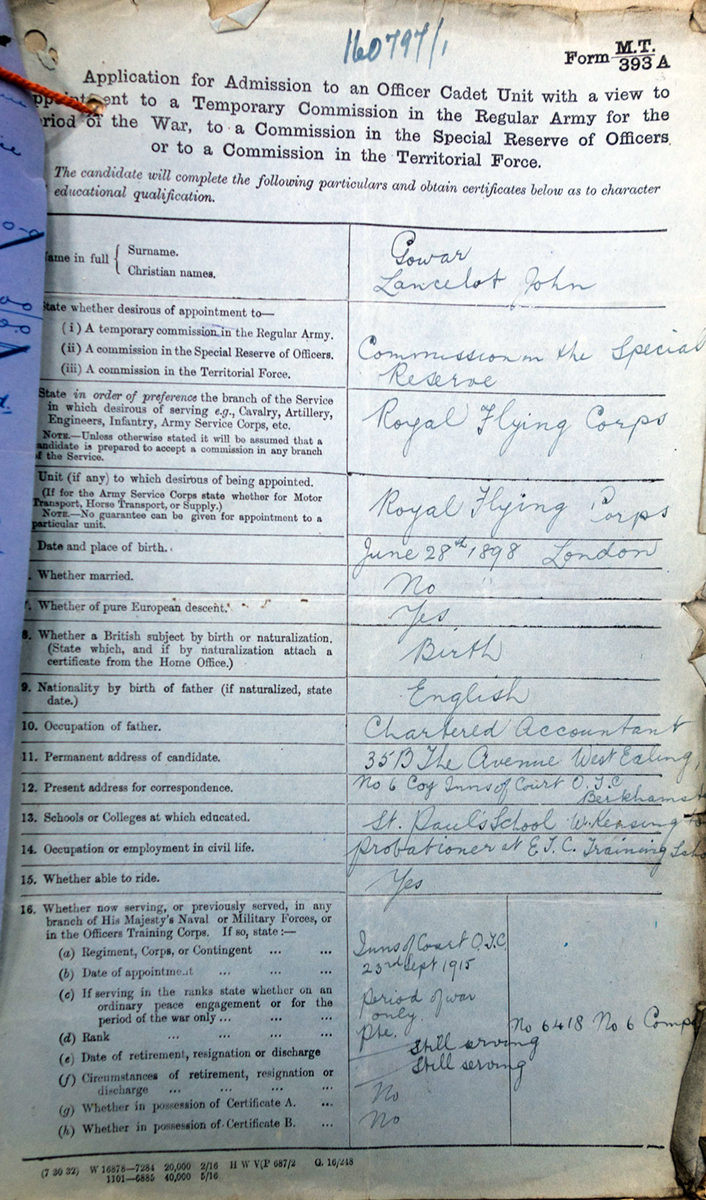 160797/1
Form M.T.
393 A
Application for Admission to an Officer Cadet Unit with a view to
ppointment to a Temporary Commission in the Regular Army for the
riod of the War, to a Commission in the Special Reserve of Officers
or to a Commission in the Territorial Force.
The candidate will complete the following particulars and obtain certificates below as to character
educational qualification.
ame in full { Surname. Gowar
Christian names. Lancelot John
State whether desirous of appointment to—
(i) A temporary commission in the Regular Army.
(ii) A commission in the Special Reserve of Officers. Commission in the Special
(iii) A commission in the Territorial Force. Reserve
State in order of preference the branch of the Service
in which desirous of serving e.g., Cavalry, Artillery, Royal Flying Corps
Engineers, Infantry, Army Service Corps, etc.
NOTE.—Unless otherwise stated it will be assumed that a
candidate is prepared to accept a commission in any branch
of the Service.
Unit (if any) to which desirous of being appointed.
(If for the Army Service Corps state whether for Motor Royal Flying Corps
Transport, Horse Transport, or Supply.)
NOTE.—No guarantee can be given for appointment to a
particular unit.
Date and place of birth. June 28th 1898 London
Whether married. No
Whether of pure European descent. Yes
8. Whether a British subject by birth or naturalization. Birth
(State which, and if by naturalization attach a
certificate from the Home Office.)
9. Nationality by birth of father (if naturalized, state English
date.)
10. Occupation of father. Chartered Accountant
11. Permanent address of candidate. 35B The Avenue West Ealing,
12. Present address for correspondence. No 6 Coy Inns of Court O.T.C.
Berkhamst
13. Schools or Colleges at which educated. St. Paul's School W. Kensington
14. Occupation or employment in civil life. Probationer at E.T.C. Training
15. Whether able to ride. Yes
16. Whether now serving, or previously served, in any
branch of His Majesty's Naval or Military Forces, or
in the Officers Training Corps. If so, state :—
(a) Regiment, Corps, or Contingent ... ... Inns of Court O.T.C.
(b) Date of appointment ... ... ... 23rd Sept 1915
(c) If serving in the ranks state whether on an Period of war
ordinary peace engagement or for the only.
period of the war only ... ... ...
(d) Rank ... ... ... ... Pte. No 6418 No 6 Comp
(e) Date of retirement, resignation or discharge Still serving
(f) Circumstances of retirement, resignation or Still serving
discharge ... ... ... ...
(g) Whether in possession of Certificate A. ... No
(h) Whether in possession of Certificate B. ... No
(7 30 32) W 16878—7284 20,000 2/16 H W V(P 687/2 G. 16/248
1101—6885 40,000 5/16